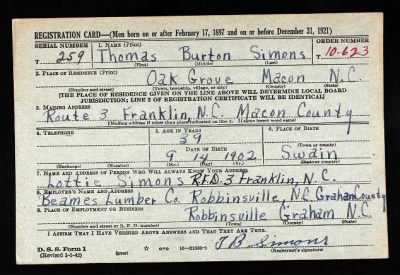 REGISTRATION CARD—(Men born on or after February 17, 1897 and on or before December 31, 1921)
SERIAL NUMBER 1. NAME (Print) ORDER NUMBER
T 259 Thomas Burton Simons 10-623
(First) (Middle) (Last)
2. PLACE OF RESIDENCE (Print)
Oak Grove Macon N.C.
(Number and street) (Town, township, village, or city) (County) (State)
[THE PLACE OF RESIDENCE GIVEN ON THE LINE ABOVE WILL DETERMINE LOCAL BOARD
JURISDICTION; LINE 2 OF REGISTRATION CERTIFICATE WILL BE IDENTICAL]
3. MAILING ADDRESS
Route 3 Franklin, N.C. Macon County
[Mailing address if other than place indicated on line 2. If same insert word same]
4. TELEPHONE 5. AGE IN YEARS 6. PLACE OF BIRTH
39
DATE OF BIRTH (Town or county)
9 14 1902 Swain
(Exchange) (Number) (Mo.) (Day) (Yr.) (State or country)
7. NAME AND ADDRESS OF PERSON WHO WILL ALWAYS KNOW YOUR ADDRESS
Lottie Simons R.F.D. 3 Franklin, N.C.
8. EMPLOYER'S NAME AND ADDRESS
Beames Lumber Co. Robbinsville N.C. Graham County
9. PLACE OF EMPLOYMENT OR BUSINESS
Robbinsville Graham N.C.
(Number and street or R. F. D. number) (Town) (County) (State)
I AFFIRM THAT I HAVE VERIFIED ABOVE ANSWERS AND THAT THEY ARE TRUE.
D. S. S. Form 1
(Revised 1-1-42) (over) T B Simons
(Registrant's signature)